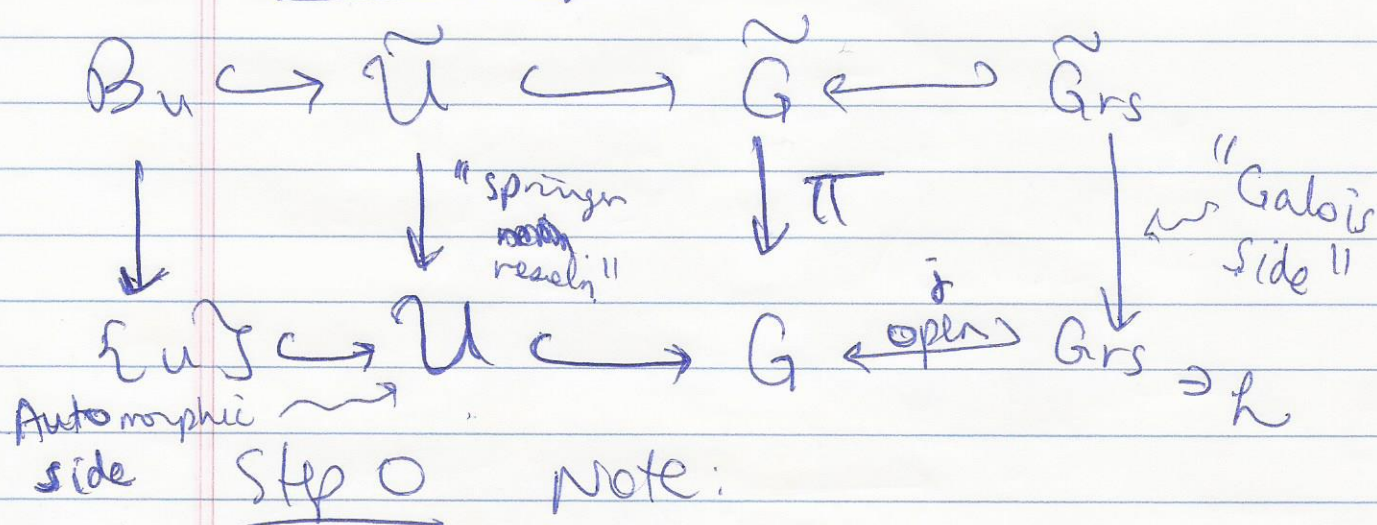 B_u ↪ Ũ ↪ G̃ ↩ G̃rs
↓ ↓ "springer resoln" ↓ π ↓ "Galois side"
{u} ↪ U ↪ G ↩ j open Grs ∋ h
Automorphic side
Step 0 Note: